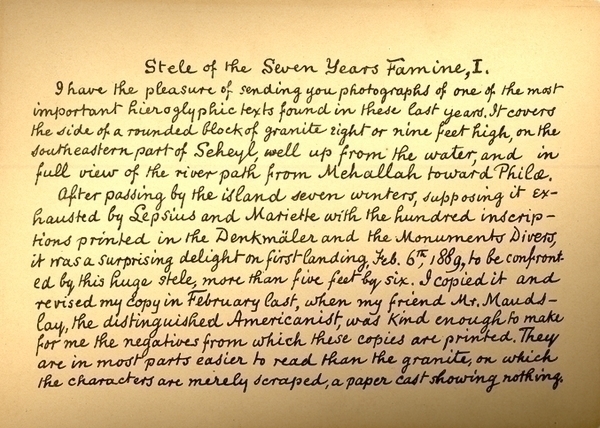 Stele of the Seven Years Famine, I.
I have the pleasure of sending you photographs of one of the most
important hieroglyphic texts found in these last years. It covers
the side of a rounded block of granite eight or nine feet high, on the
southeastern part of Seheyl, well up from the water, and in
full view of the river path from Mehallah toward Philæ.
After passing by the island seven winters, supposing it ex-
hausted by Lepsius and Mariette with the hundred inscrip-
tions printed in the Denkmäler and the Monuments Divers,
it was a surprising delight on first landing, Feb. 6th, 1889, to be confront-
ed by this huge stele, more than five feet by six. I copied it and
revised my copy in February last, when my friend Mr. Mauds-
lay, the distinguished Americanist, was kind enough to make
for me the negatives from which these copies are printed. They
are in most parts easier to read than the granite, on which
the characters are merely scraped, a paper cast showing nothing.